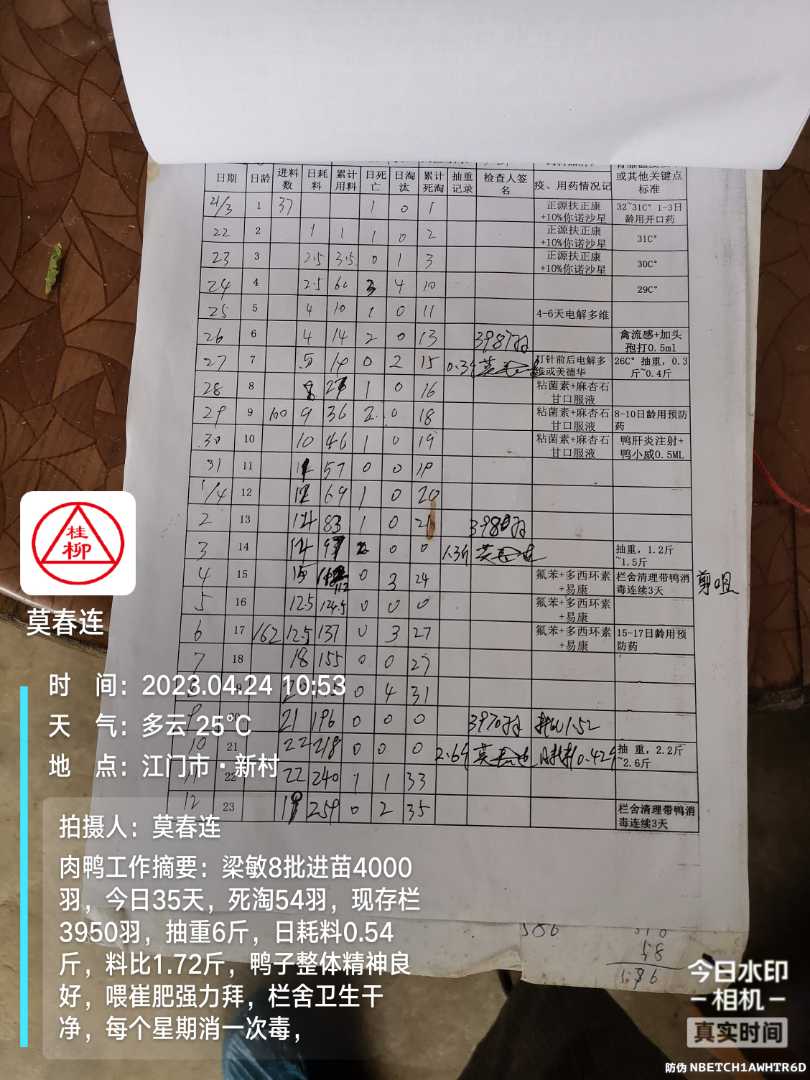 日期 日龄 进料数 日耗料 累计用料 日死亡 日淘汰 累计死淘 抽重记录 检查人签名 疫、用药情况记 或其他关键点标准
21/3 1 37 1 0 1 正源扶正康+10%你诺沙星 32~31C° 1-3日龄用开口药
22 2 1 1 1 0 2 正源扶正康+10%你诺沙星 31C°
23 3 2.5 3.5 0 1 3 正源扶正康+10%你诺沙星 30C°
24 4 2.5 60 3 4 10 29C°
25 5 4 10 1 0 11 4-6天电解多维
26 6 4 14 2 0 13 3987羽 禽流感+加头孢打0.5ml
27 7 5 19 0 2 15 0.39 打针前后电解多维或美德华 26C° 抽重,0.3斤~0.4斤
28 8 8 27 1 0 16 粘菌素+麻杏石甘口服液
29 9 100 9 36 2 0 18 粘菌素+麻杏石甘口服液 8-10日龄用预防药
30 10 10 46 1 0 19 粘菌素+麻杏石甘口服液 鸭肝炎注射+鸭小威0.5ML
31 11 11 57 0 0 19
1/4 12 12 69 1 0 20
2 13 14 83 1 0 21 3980羽
3 14 14 97 0 0 1.39 抽重,1.2斤~1.5斤
4 15 15 112 0 3 24 氟苯+多西环素+易康 栏舍清理带鸭消毒连续3天 剪咀
5 16 12.5 124.5 0 0 0 氟苯+多西环素+易康
6 17 162 12.5 137 0 3 27 氟苯+多西环素+易康 15-17日龄用预防药
7 18 18 155 0 0 27
8 0 4 31
9 20 21 196 0 0 0 3970羽 1.52
10 21 22 218 0 0 0 2.69 日耗料0.429 抽重,2.2斤~2.6斤
11 22 22 240 1 1 33
12 23 19 259 0 2 35 栏舍清理带鸭消毒连续3天
586
58
桂
柳
莫春连
时 间:2023.04.24 10:53
天 气:多云 25℃
地 点:江门市·新村
拍摄人:莫春连
肉鸭工作摘要:梁敏8批进苗4000
羽,今日35天,死淘54羽,现存栏
3950羽,抽重6斤,日耗料0.54
斤,料比1.72斤,鸭子整体精神良
好,喂崔肥强力拜,栏舍卫生干
净,每个星期消一次毒,
今日水印
相机
真实时间
防伪 NBETCH1AWHTR6D